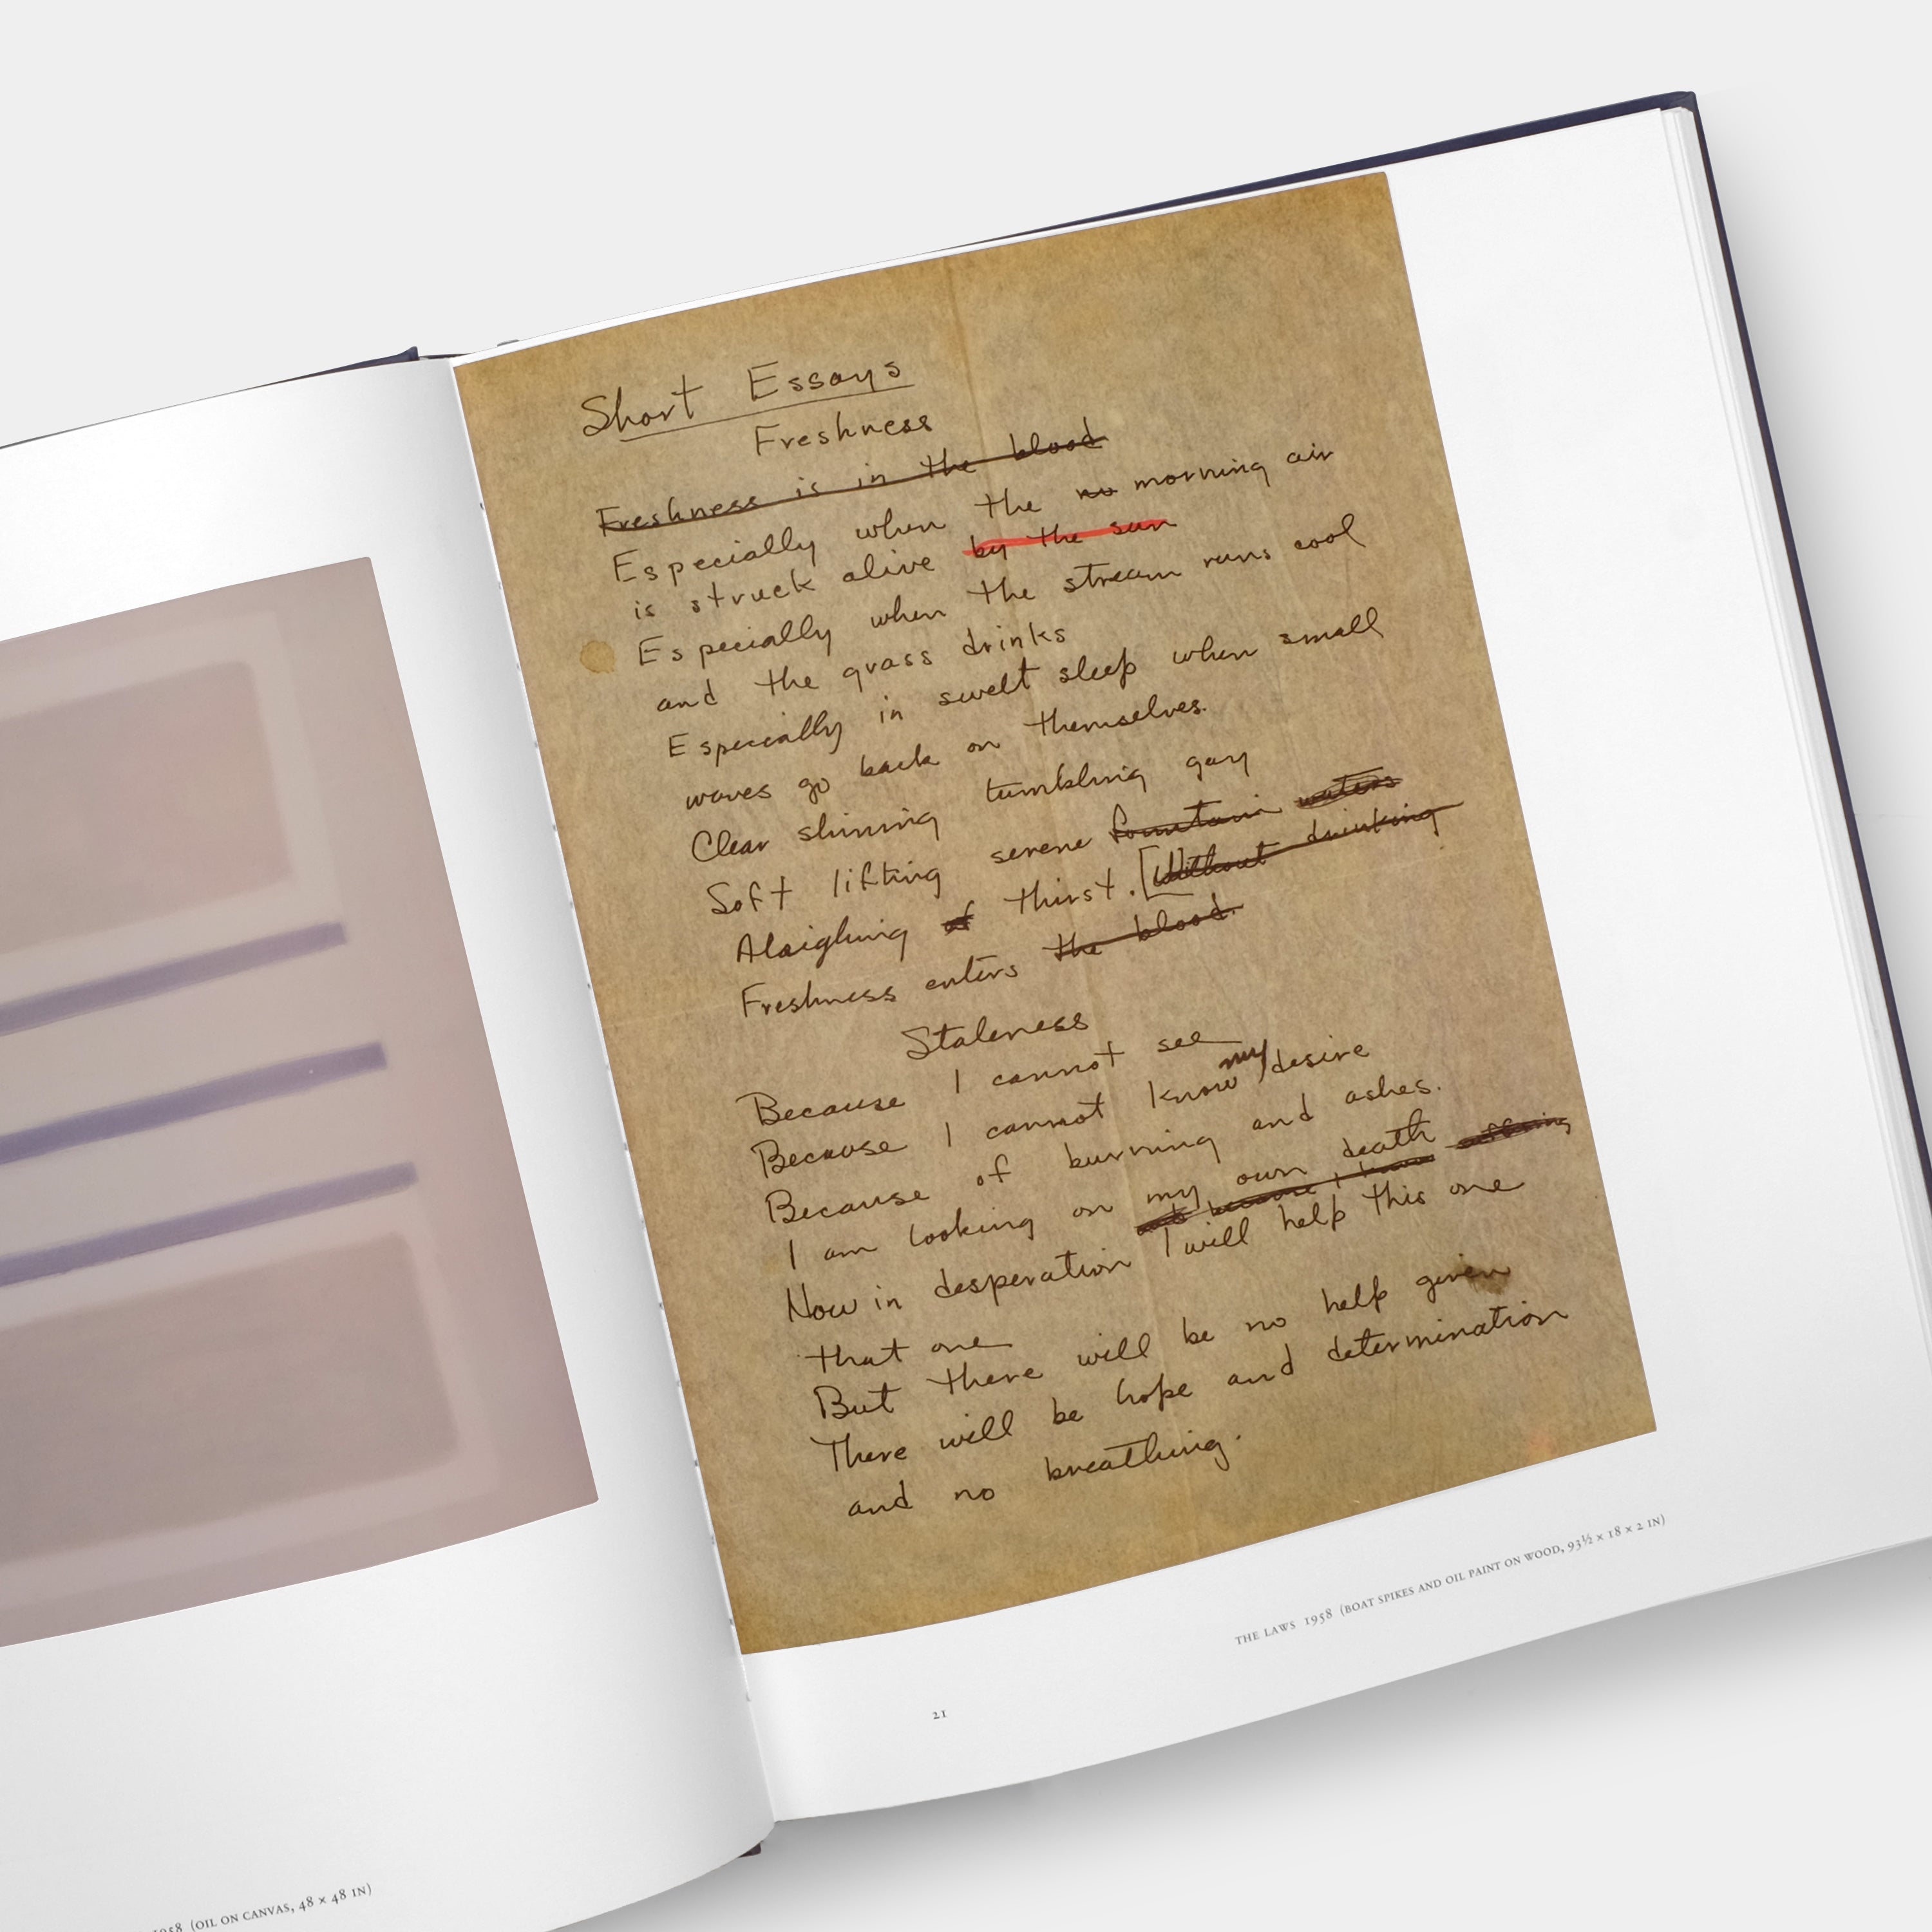 Short Essays
Freshness
Freshness is in the blood
Especially when the morning air
is struck alive by the sun
Especially when the stream runs cool
and the grass drinks
Especially in swelt sleep when small
waves go back on themselves.
Clear shining tumbling gay
Soft lifting serene fountain waters
thirst. [Without drinking
Freshness enters the blood.
Staleness
Because I cannot see
Because I cannot know my desire
Because of burning and ashes.
I am looking on my own death
and because I know
Now in desperation I will help this one
that one
But there will be no help given
There will be hope and determination
and no breathing.
1958 (OIL ON CANVAS, 48 × 48 IN)
THE LAWS 1958 (BOAT SPIKES AND OIL PAINT ON WOOD, 93½ × 18 × 2 IN)
21